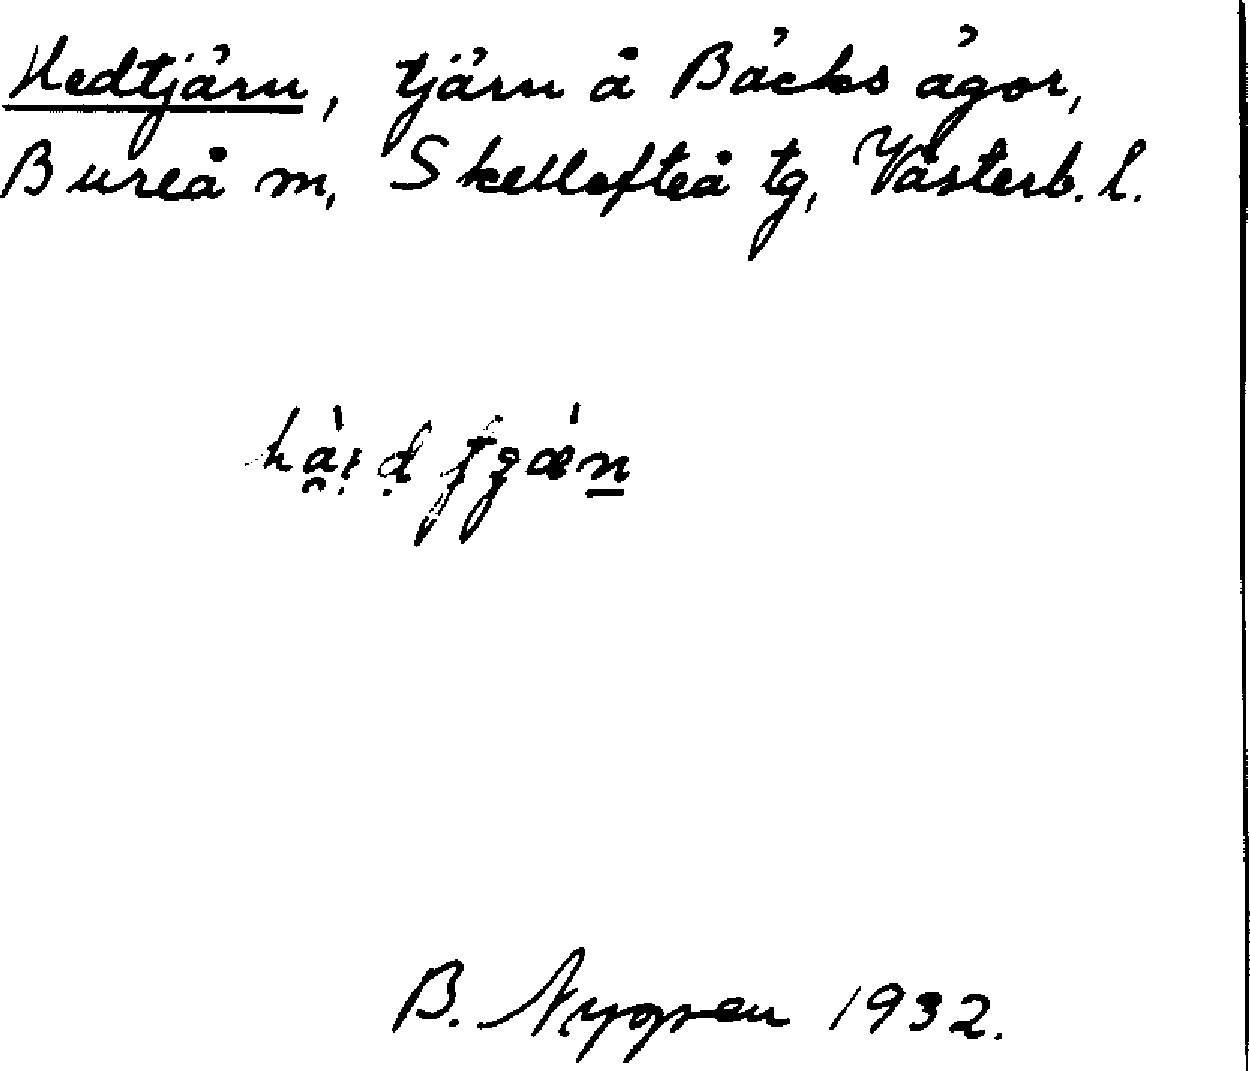 Hedtjärn, tjärn å Bäcks ägor,
Bureå m, Skellefteå tg, Västerb. l.
B. Nygren 1932.